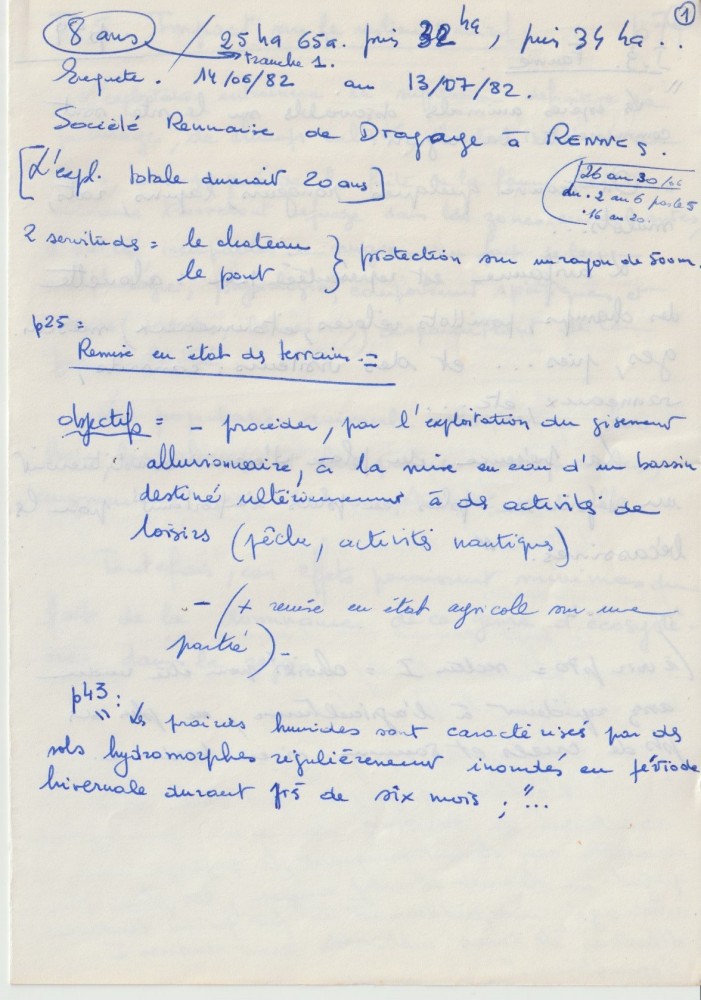 1
8 ans / 25 ha 65a. puis 32 ha, puis 34 ha..
tranche 1.
Enquete. 14/06/82 au 13/07/82.
Société Rennaise de Dragage à RENNES.
[L'expl. totale durerait 20 ans]
26 au 30/06
du . 2 au 6
. 16 au 20.
2 servitudes = le chateau } protection sur un rayon de 500m.
le pont
p25 =
Remise en état des terrains. =
objectifs = - procéder, par l'exploitation du gisement
alluvionnaire, à la mise en eau d'un bassin
destiné ultérieurement à des activités de
loisirs (pêche, activités nautiques)
- (+ remise en état agricole sur une
partie) -
p43 :
" Les prairies humides sont caractérisés par des
sols hydromorphes régulièrement inondés en période
hivernale durant près de six mois ; "...